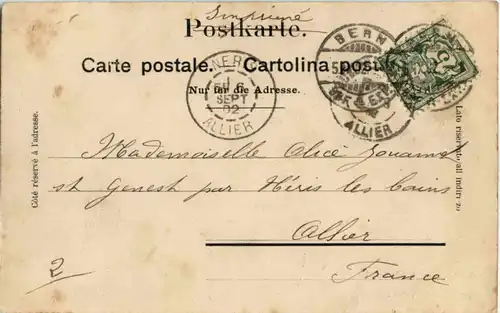 Imprimé
Postkarte.
Carte postale. Cartolina post
Nur für die Adresse.
BERN
SEPT
02
ALLIER
ALLIER
Côté réservé à l'adresse.
Lato riservato all'indirizzo
Mademoiselle Alice
st Genest par Néris les bains
Allier
France
2